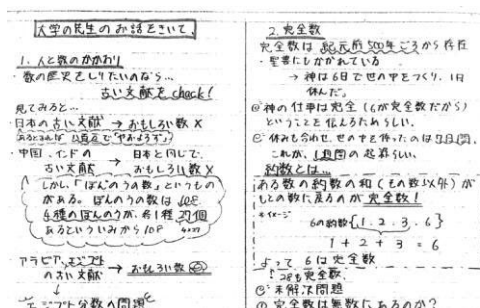 大学の先生のお話をきいて。
1. 人と数のかかわり
・数の歴史をしりたいのなら…
古い文献を check!
見てみると…
・日本の古い文献 → おもしろい数 ×
・中国、インドの 日本と同じで、
古い文献 → おもしろい数 ×
しかし、「ぼんのうの数」というもの
がある。ぼんのうの数は 108
4種のぼんのうが、各1種 27個
あるといういみから108 4×27
アラビア、エジプト
の古い文献 → おもしろい数
エジプト分数の問題
2. 完全数
完全数は 紀元前500年ごろから存在
・聖書にもかかれている
→ 神は6日で世の中をつくり、1日
休んだ。
神の仕事は完全(6が完全数だから)
ということを伝えるためらしい。
休みも合わせ世の中を作ったのは7日間、
これが、1週間の起源らしい。
約数とは…
ある数の約数の和(その数以外)が
もとの数に戻るのが完全数!
*イメージ
6の約数{1, 2, 3, 6}
1 + 2 + 3 = 6
よって 6は完全数
28も完全数
未解決問題
① 完全数は無数にあるのか?